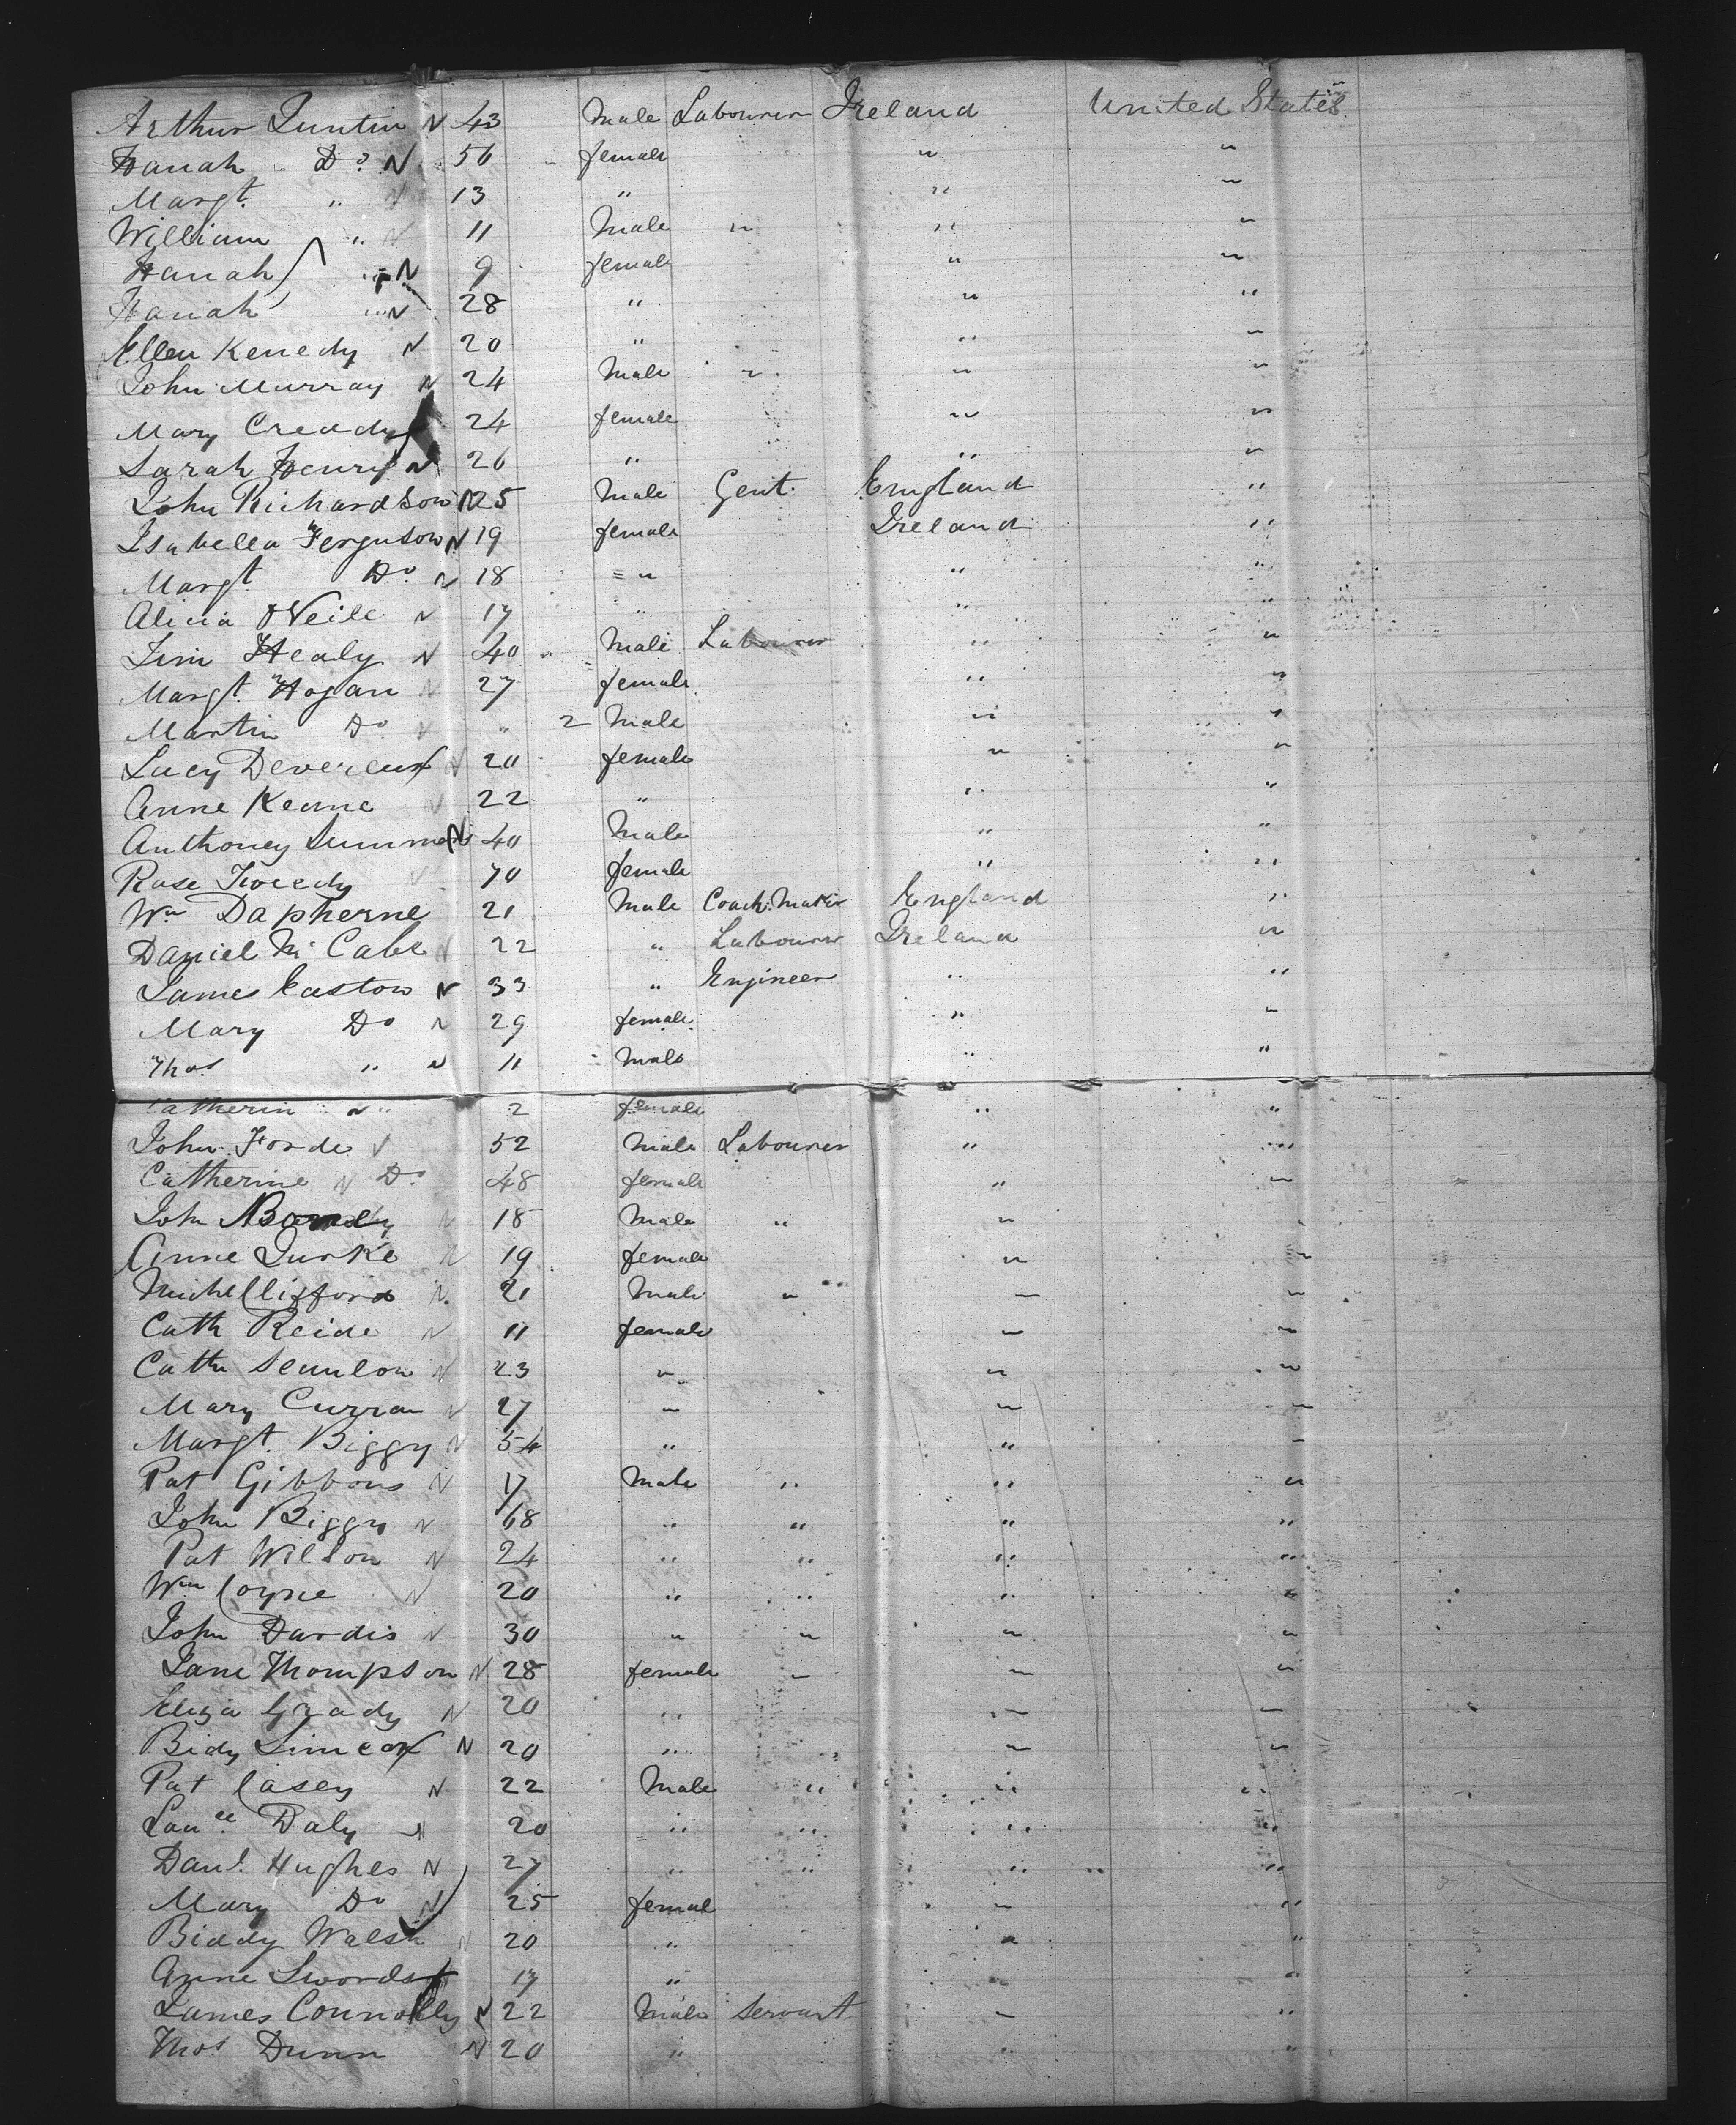 Arthur Quntin N 43 Male Labourer Ireland United States
Hanah Do N 56 female " "
Margt. " N 13 " " "
William " N 11 Male " " "
Hanah " N 9 female " "
Hanah " N 28 " " "
Ellen Kenedy N 20 " " "
John Murray N 24 Male " " "
Mary Cready 24 female " "
Sarah Henry N 26 " " "
John Richardson N 25 Male Gent. England "
Isabella Ferguson N 19 female Ireland "
Margt Do N 18 " " "
Alicia O'Neile N 17 " " "
Jim Healy N 40 Male Labourer " "
Margt. Hogan N 27 female " "
Martin Do N " 2 Male " "
Lucy Devereux N 20 female " "
Anne Keane N 22 " " "
Anthoney Summers N 40 Male " "
Rose Tweedy N 70 female " "
Wm Dapherne 21 Male Coach Maker England "
Daniel Mc Cabe N 22 " Labourer Ireland "
James Easton N 33 " Engineer " "
Mary Do N 29 female " "
Thos " N 11 Male " "
Catherin N " 2 female " "
John Forde N 52 Male Labourer " "
Catherine N Do 48 female " "
John N 18 Male " " "
Anne Durke N 19 female " "
Michel Clifford N 21 Male " " "
Cath Reide N 11 female " "
Cathe Scanlon N 23 " " "
Mary Curran N 27 " " "
Margt. Biggy N 54 " " "
Pat Gibbons N 17 Male " " "
John Biggy N 68 " " " "
Pat Wilson N 24 " " " "
Wm Coyne N 20 " " " "
John Dardis N 30 " " " "
Jane Thompson N 28 female " " "
Eliza Grady N 20 " " "
Bidy Simcox N 20 " " "
Pat Casey N 22 Male " " "
Laurce Daly N 20 " " " "
Danl. Hughes N 27 " " " "
Mary Do N 25 female " "
Biddy Walsh N 20 " " "
Anne Swords 17 " " "
James Connolly N 22 Male Servant " "
Thos Dunn N 20 " " "